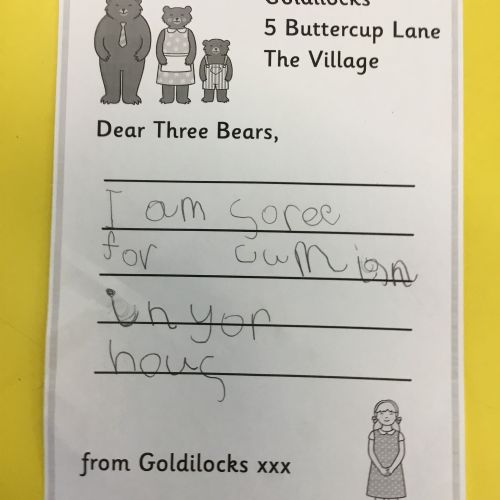 Goldilocks
5 Buttercup Lane
The Village
Dear Three Bears,
I am soree
for cumign
in yor
hous
from Goldilocks xxx